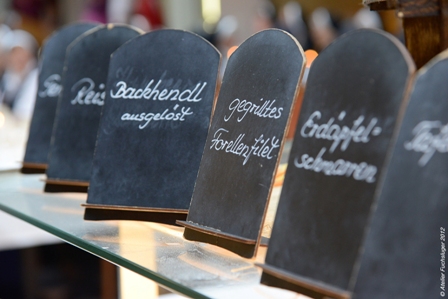 Reis
Backhendl
ausgelöst
gegrilltes
Forellenfilet
Erdäpfel-
schmarren
© Atelier Fuchsluger 2012